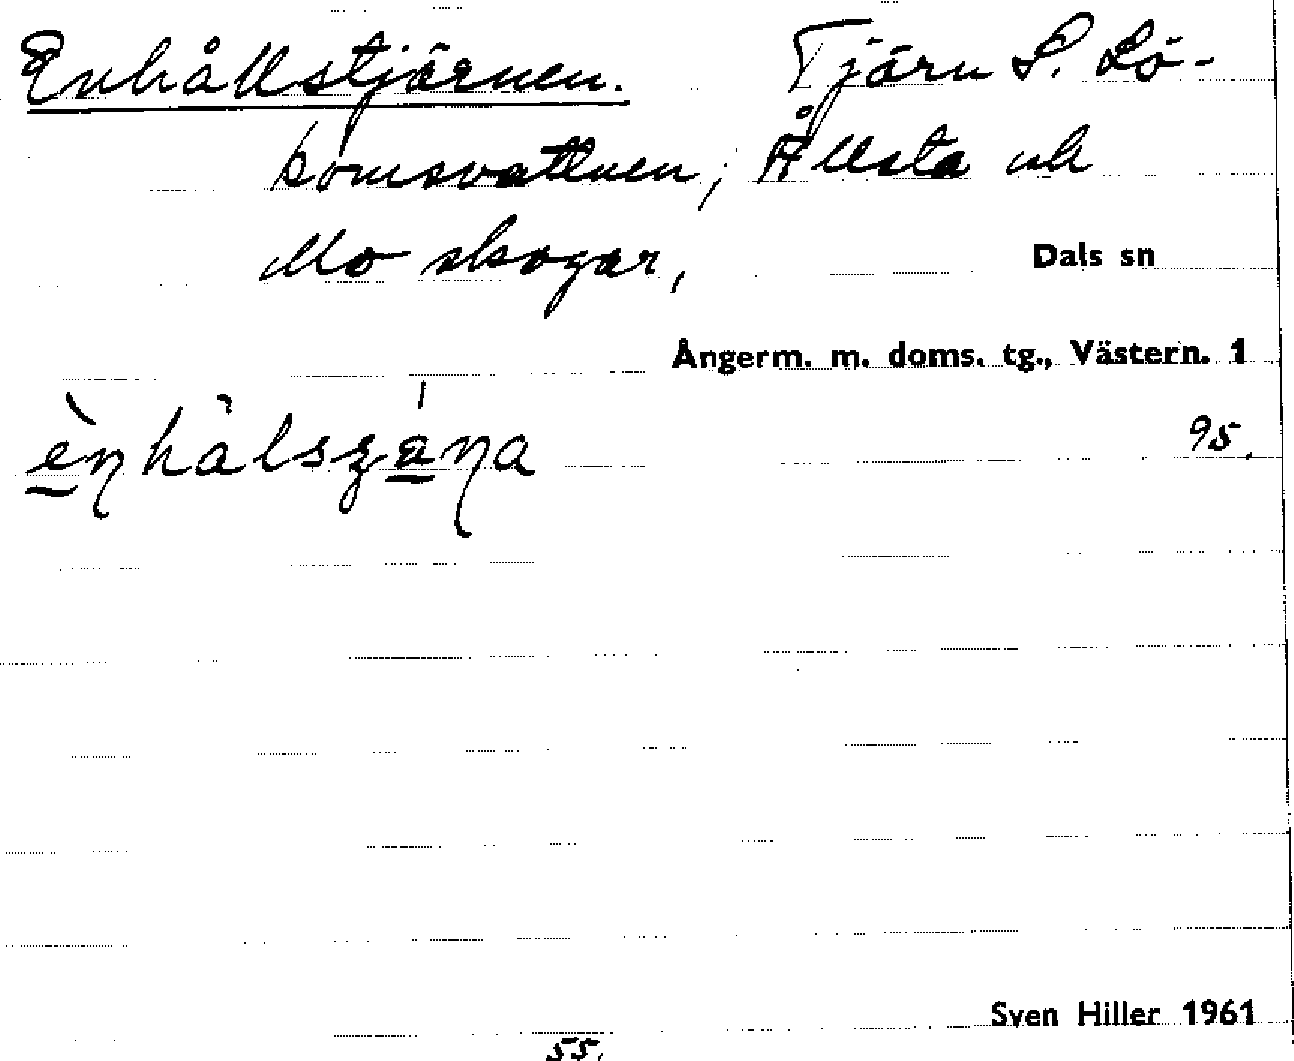 Enhållstjärnen. Tjärn S. Lö-
bomsvattnen, Ållsta och
Mo skogar, Dals sn
Ångerm. m. doms. tg., Västern. 1
95.
Sven Hiller 1961
55.